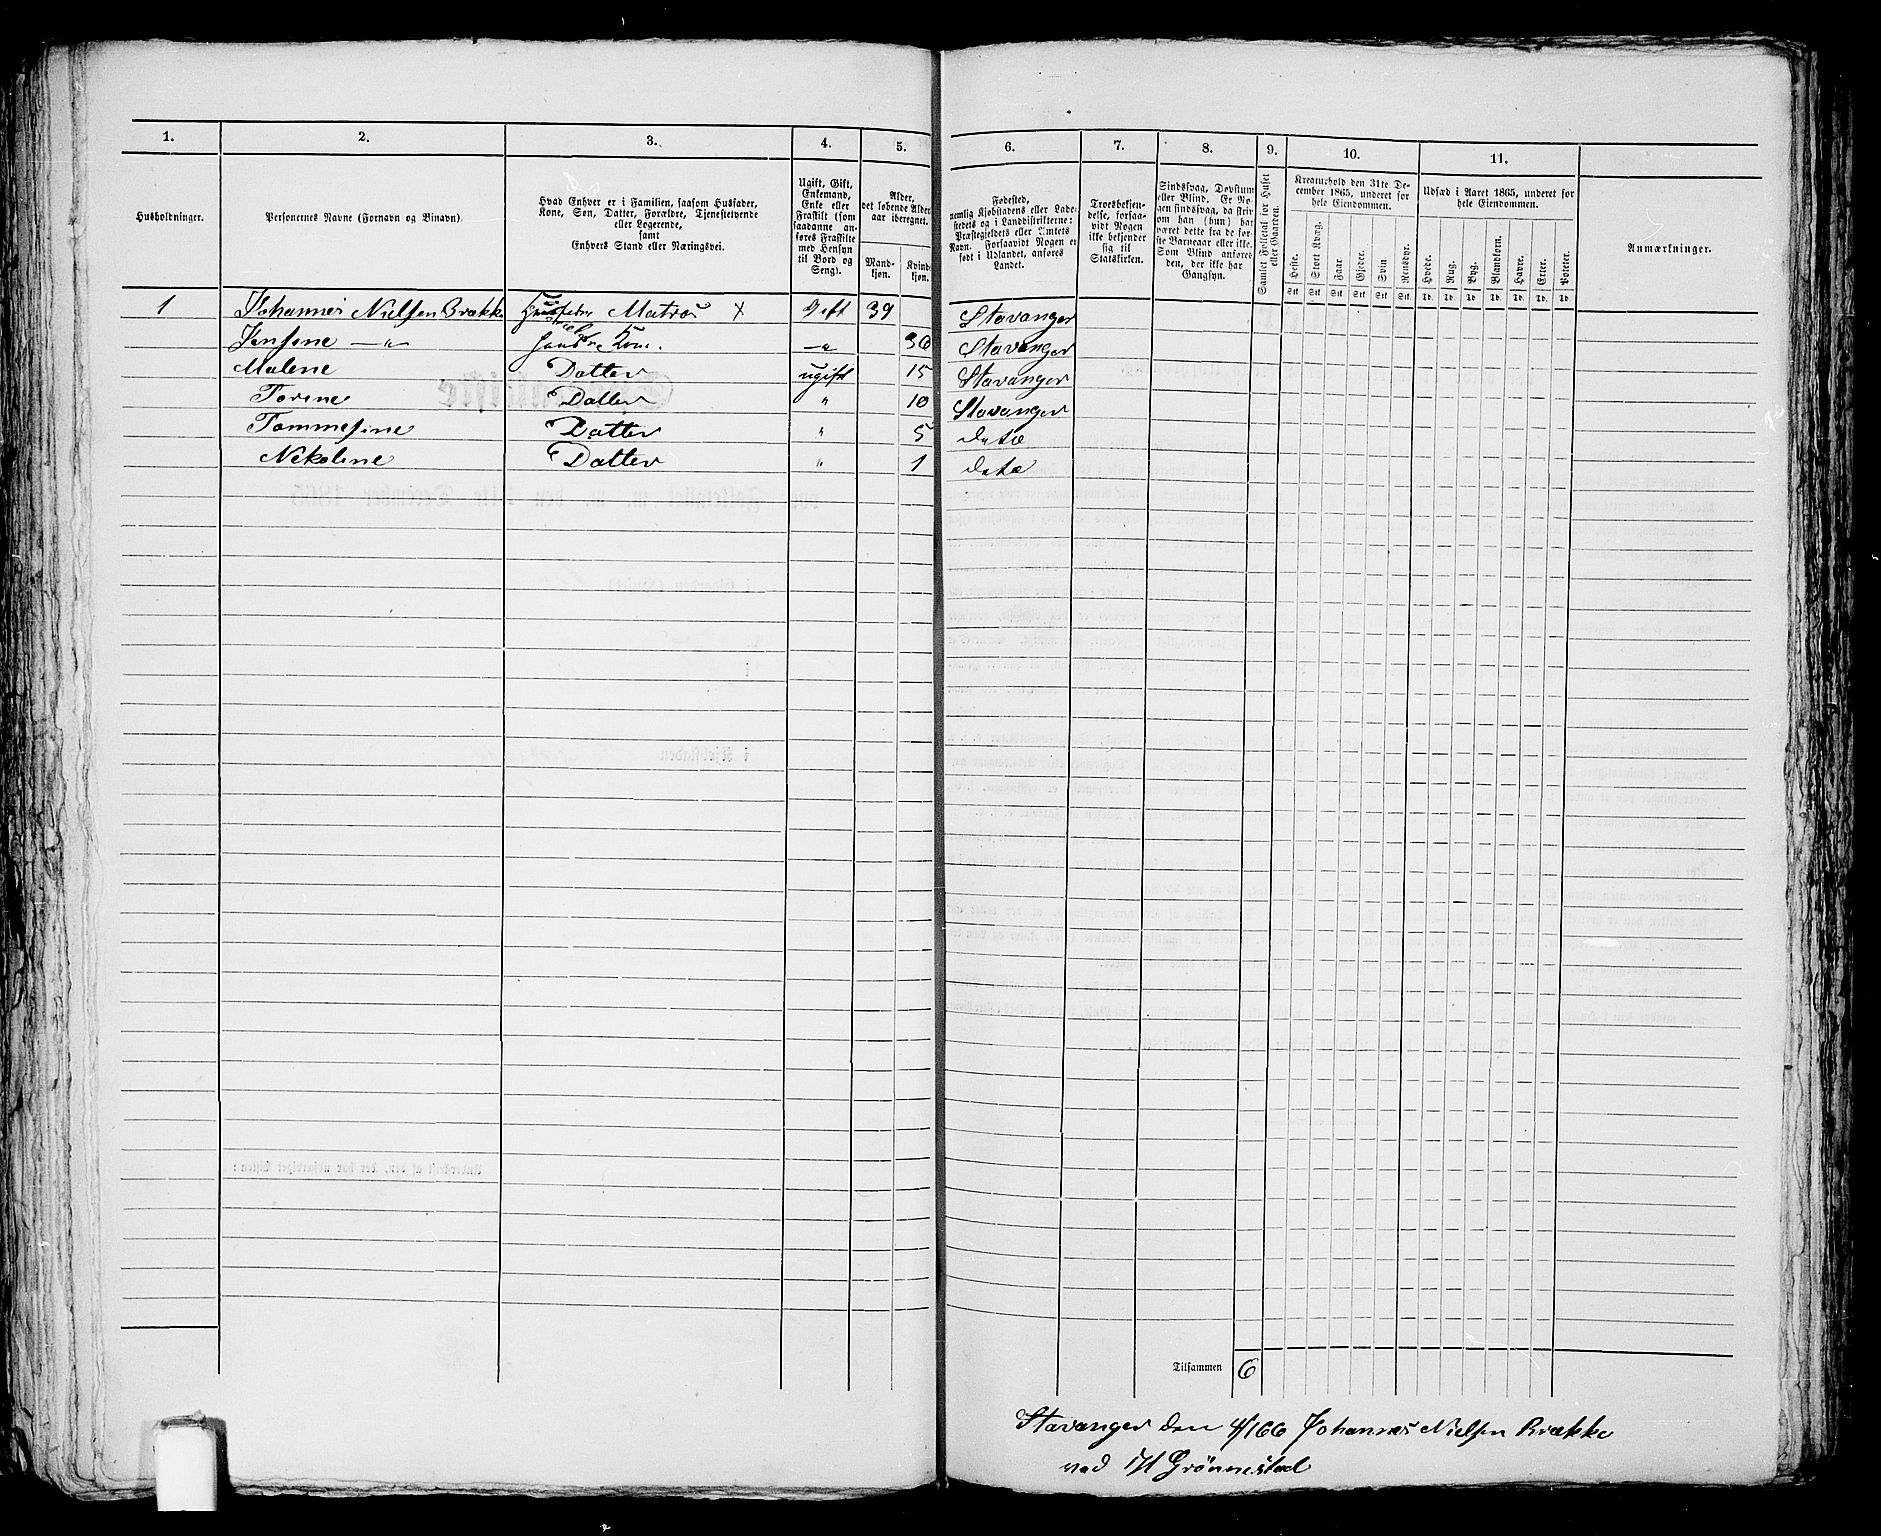 1. 2. 3. 4. 5. 6. 7. 8. 9. 10. 11.
Husholdninger.
Personernes Navne (Fornavn og Binavn).
Hvad Enhver er i Familien, saasom Husfader,
Kone, Søn, Datter, Forældre, Tjenestetyende
eller Logerende,
samt
Enhvers Stand eller Næringsvei.
Ugift, Gift,
Enkemand,
Enke eller
Fraskilt (som
saadanne an-
føres Fraskilte
med Hensyn
til Bord og
Seng).
Alder,
det løbende Alder-
aar iberegnet.
Mand-
kjøn.
Kvind-
kjøn.
Fødested,
nemlig Kjøbstadens eller Lade-
stedets og i Landdistrikterne:
Præstegjeldets eller Amtets
Navn. Forsaavidt Nogen er
født i Udlandet, anføres
Landet.
Troesbekjen-
delse, forsaa-
vidt Nogen
ikke bekjender
sig
til
Statskirken.
Sindssvag, Døvstum
eller Blind. Er No-
gen sindssvag, da skriv
om han (hun) har
været dette fra de før-
ste Barneaar eller ikke.
Som Blind anføres
den, der ikke har
Gangsyn.
Samlet Folketal for Huset
eller Gaarden.
Kreaturhold den 31te De-
cember 1865, underet for
hele Eiendommen.
Heste.
Stort Kvæg.
Faar.
Gjeder.
Svin
Rensdyr.
Stk. Stk. Stk. Stk. Stk. Stk.
Udsæd i Aaret 1865, underet for
hele Eiendommen.
Hvede.
Rug.
Byg.
Blandkorn.
Havre.
Erter.
Poteter.
Td. Td. Td. Td. Td. Td. Td.
Anmærkninger.
1 Johannes Nielsen Brække Husfader Matros x Gift 39 Stavanger
Jensine —"— Kone. —" 36 Stavanger
Malene Datter ugift 15 Stavanger
Torine Datter " 10 Stavanger
Tommesine Datter " 5 dito
Nikoline Datter " 1 dito
Tilsammen 6
Stavanger den 4/1 66 Johannes Nielsen Brække
ved Grönnestad